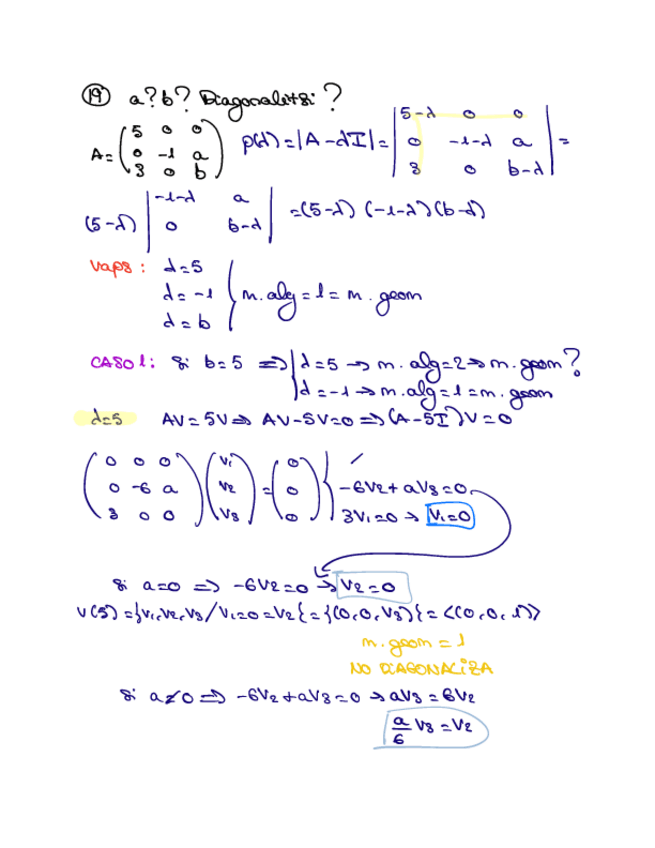 19 a? b? Diagonalitzi?
A = ( 5 0 0 / 0 -1 a / 3 0 b ) p(λ) = |A - λI| = | 5-λ 0 0 / 0 -1-λ a / 3 0 b-λ | =
(5-λ) | -1-λ a / 0 b-λ | = (5-λ) (-1-λ) (b-λ)
vaps: λ=5
λ=-1 } m.alg = 1 = m.geom
λ=b
CASO 1: Si b=5 ⇒ | λ=5 → m.alg=2 → m.geom?
λ=-1 → m.alg=1=m.geom
λ=5 AV=5V ⇒ AV-5V=0 ⇒ (A-5I)V=0
( 0 0 0 / 0 -6 a / 3 0 0 ) ( V1 / V2 / V3 ) = ( 0 / 0 / 0 ) }
-6V2+aV3=0
3V1=0 → V1=0
Si a=0 ⇒ -6V2=0 → V2=0
V(5)={V1,V2,V3/V1=0=V2}={(0,0,V3)}=<(0,0,1)>
m.geom=1
NO DIAGONALIZA
Si a≠0 ⇒ -6V2+aV3=0 → aV3=6V2
a/6 V3=V2